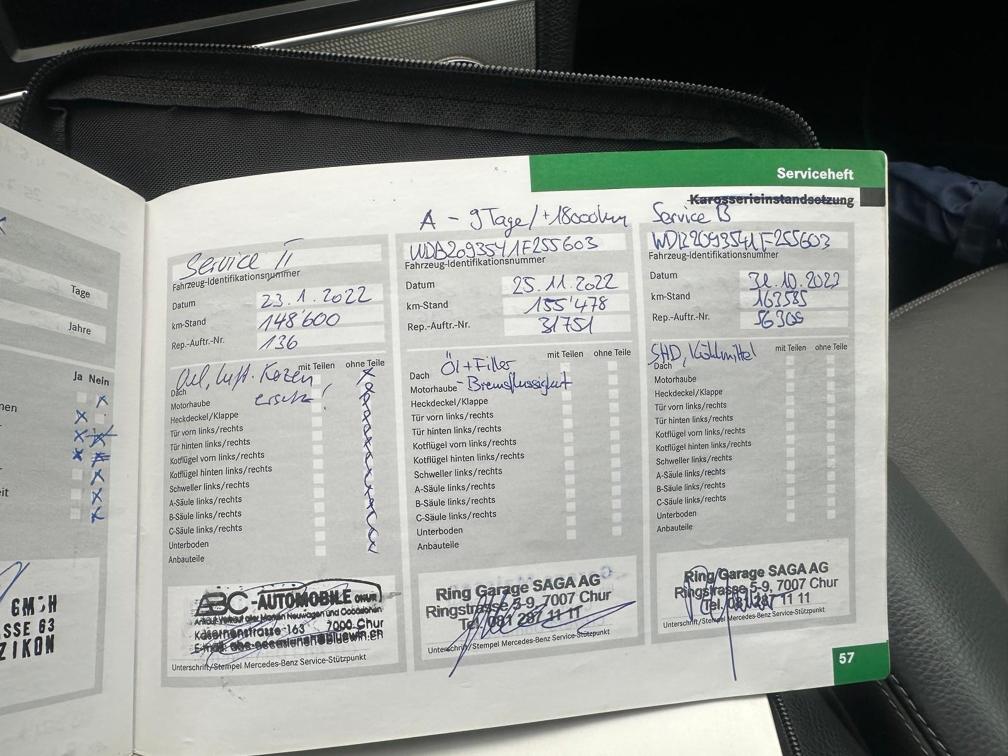 Serviceheft
Karosserieinstandsetzung
Tage
Jahre
Ja Nein
GMBH
SSE 63
ZIKON
Service II
Fahrzeug-Identifikationsnummer
Datum 23.1.2022
km-Stand 148'600
Rep.-Auftr.-Nr. 136
mit Teilen ohne Teile
Oel, Luft. Kozen
ersetzt!
Dach
Motorhaube
Heckdeckel/Klappe
Tür vorn links/rechts
Tür hinten links/rechts
Kotflügel vorn links/rechts
Kotflügel hinten links/rechts
Schweller links/rechts
A-Säule links/rechts
B-Säule links/rechts
C-Säule links/rechts
Unterboden
Anbauteile
ABC-AUTOMOBILE CHUR
Kasernenstrasse 163 7000 Chur
E-mail: abc-occasionen@bluewin.ch
Unterschrift/Stempel Mercedes-Benz Service-Stützpunkt
A - 9 Tage / +18000km
WDB2093541F255603
Fahrzeug-Identifikationsnummer
Datum 25.11.2022
km-Stand 155'478
Rep.-Auftr.-Nr. 31751
mit Teilen ohne Teile
Öl + Filter
Dach
- Bremsflüssigkeit
Motorhaube
Heckdeckel/Klappe
Tür vorn links/rechts
Tür hinten links/rechts
Kotflügel vorn links/rechts
Kotflügel hinten links/rechts
Schweller links/rechts
A-Säule links/rechts
B-Säule links/rechts
C-Säule links/rechts
Unterboden
Anbauteile
Ring Garage SAGA AG
Ringstrasse 5-9, 7007 Chur
Tel. 081 287 11 11
Unterschrift/Stempel Mercedes-Benz Service-Stützpunkt
Service B
WDB2093541F255603
Fahrzeug-Identifikationsnummer
Datum 31.10.2023
km-Stand 163585
Rep.-Auftr.-Nr. 56305
mit Teilen ohne Teile
SHD, Kühlmittel
Dach
Motorhaube
Heckdeckel/Klappe
Tür vorn links/rechts
Tür hinten links/rechts
Kotflügel vorn links/rechts
Kotflügel hinten links/rechts
Schweller links/rechts
A-Säule links/rechts
B-Säule links/rechts
C-Säule links/rechts
Unterboden
Anbauteile
Ring Garage SAGA AG
Ringstrasse 5-9, 7007 Chur
Tel. 081 287 11 11
Unterschrift/Stempel Mercedes-Benz Service-Stützpunkt
57